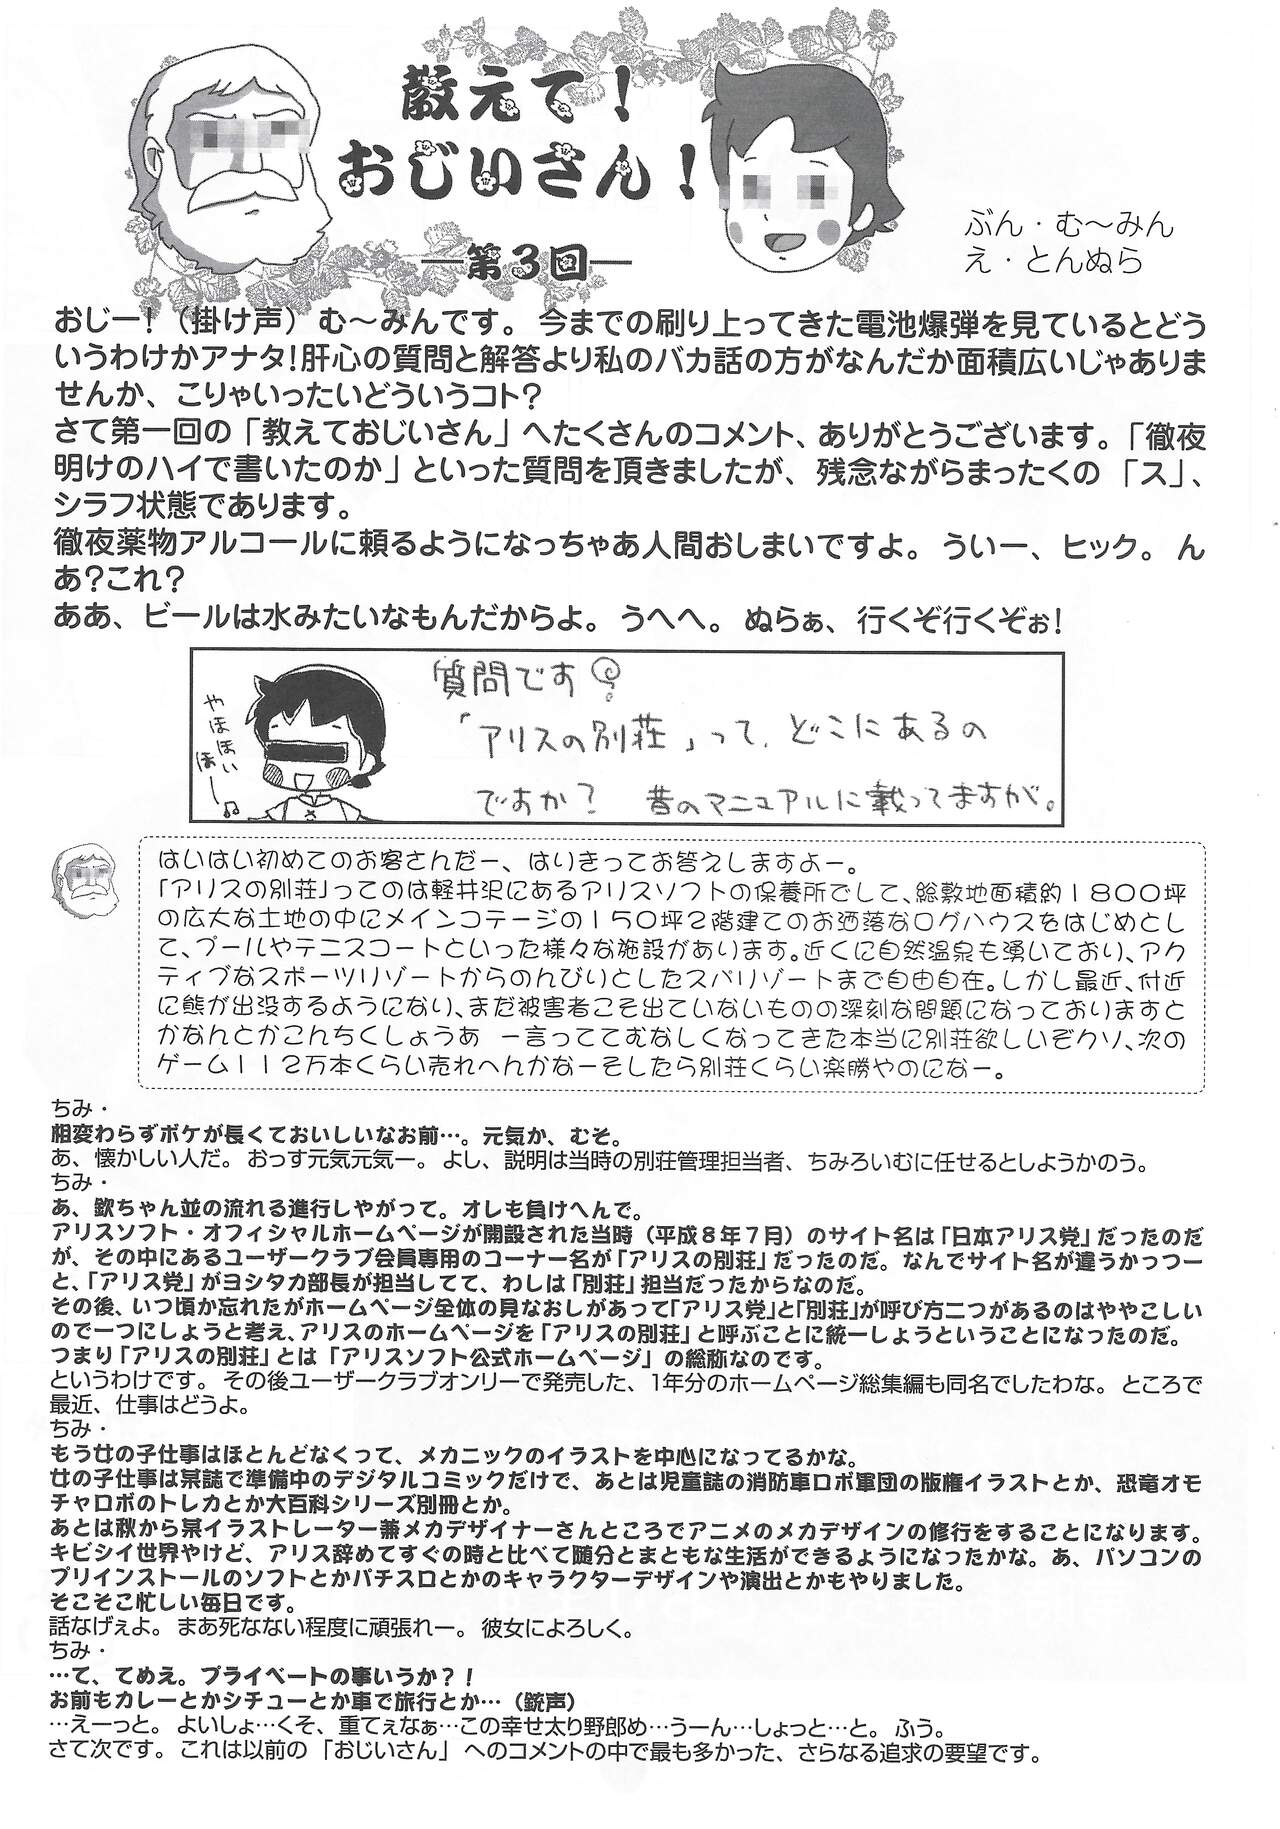 教えて！
おじいさん！
―第３回―
ぶん・む～みん
え・とんぬら
おじー！（掛け声）む～みんです。今までの刷り上ってきた電池爆弾を見ているとどう
いうわけかアナタ！肝心の質問と解答より私のバカ話の方がなんだか面積広いじゃありま
せんか、こりゃいったいどういうコト？
さて第一回の「教えておじいさん」へたくさんのコメント、ありがとうございます。「徹夜
明けのハイで書いたのか」といった質問を頂きましたが、残念ながらまったくの「ス」、
シラフ状態であります。
徹夜薬物アルコールに頼るようになっちゃあ人間おしまいですよ。ういー、ヒック。ん
あ？これ？
ああ、ビールは水みたいなもんだからよ。うへへ。ぬらぁ、行くぞ行くぞぉ！
やほほい
ほー♫
質問です？
「アリスの別荘」って、どこにあるの
ですか？　昔のマニュアルに載ってますが。
はいはい初めてのお客さんだー、はりきってお答えしますよー。
「アリスの別荘」ってのは軽井沢にあるアリスソフトの保養所でして、総敷地面積約１８００坪
の広大な土地の中にメインコテージの１５０坪２階建てのお洒落なログハウスをはじめとし
て、プールやテニスコートといった様々な施設があります。近くに自然温泉も湧いており、アク
ティブなスポーツリゾートからのんびりとしたスパリゾートまで自由自在。しかし最近、付近
に熊が出没するようになり、まだ被害者こそ出ていないものの深刻な問題になっておりますと
かなんとかこんちくしょうあ　ー言っててむなしくなってきた本当に別荘欲しいぞクソ、次の
ゲーム１１２万本くらい売れへんかなーそしたら別荘くらい楽勝やのになー。
ちみ・
相変わらずボケが長くておいしいなお前…。元気か、むそ。
あ、懐かしい人だ。おっす元気元気ー。よし、説明は当時の別荘管理担当者、ちみろいむに任せるとしようかのう。
ちみ・
あ、欽ちゃん並の流れる進行しやがって。オレも負けへんで。
アリスソフト・オフィシャルホームページが開設された当時（平成８年７月）のサイト名は「日本アリス党」だったのだ
が、その中にあるユーザークラブ会員専用のコーナー名が「アリスの別荘」だったのだ。なんでサイト名が違うかっつー
と、「アリス党」がヨシタカ部長が担当してて、わしは「別荘」担当だったからなのだ。
その後、いつ頃か忘れたがホームページ全体の見なおしがあって「アリス党」と「別荘」が呼び方二つがあるのはややこしい
ので一つにしようと考え、アリスのホームページを「アリスの別荘」と呼ぶことに統一しようということになったのだ。
つまり「アリスの別荘」とは「アリスソフト公式ホームページ」の総称なのです。
というわけです。その後ユーザークラブオンリーで発売した、1年分のホームページ総集編も同名でしたわな。ところで
最近、仕事はどうよ。
ちみ・
もう女の子仕事はほとんどなくって、メカニックのイラストを中心になってるかな。
女の子仕事は某誌で準備中のデジタルコミックだけで、あとは児童誌の消防車ロボ軍団の版権イラストとか、恐竜オモ
チャロボのトレカとか大百科シリーズ別冊とか。
あとは秋から某イラストレーター兼メカデザイナーさんところでアニメのメカデザインの修行をすることになります。
キビシイ世界やけど、アリス辞めてすぐの時と比べて随分とまともな生活ができるようになったかな。あ、パソコンの
プリインストールのソフトとかパチスロとかのキャラクターデザインや演出とかもやりました。
そこそこ忙しい毎日です。
話なげぇよ。まあ死なない程度に頑張れー。彼女によろしく。
ちみ・
…て、てめえ。プライベートの事いうか？！
お前もカレーとかシチューとか車で旅行とか…（銃声）
…えーっと。よいしょ…くそ、重てぇなぁ…この幸せ太り野郎め…うーん…しょっと…と。ふう。
さて次です。これは以前の「おじいさん」へのコメントの中で最も多かった、さらなる追求の要望です。